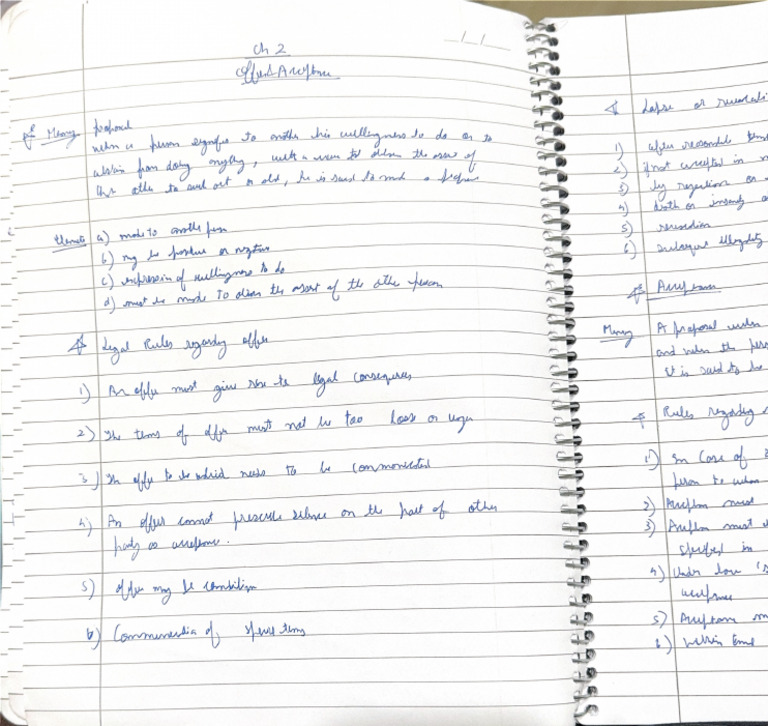 Ch 2
Offer & Acceptance
Meaning proposal
when a person signifies to another his willingness to do or to
abstain from doing anything, with a view to obtain the assent of
the other to such act or, he is said to make a proposal
Elements a) made to another person
b) may be positive or negative
c) expression of willingness to do
d) must be made TO obtain the assent of the other person
Legal Rules regarding offer
1) An offer must give rise to legal consequences
2) The terms of offer must not be too loose or vague
3) The offer to be needs to be communicated
4) An offer cannot prescribe silence on the part of other
party as acceptance.
5) offer may be conditional
6) Communication of special terms
Lapse or revocation
1) after reasonable time
2) if not accepted in
3) by rejection or
4) death or insanity
5) revocation
6) subsequent illegality
Acceptance
Meaning A proposal when
and when the
it is said to be
Rules regarding
1) In Case of
person to whom
2) Acceptance must
3) Acceptance must
specified in
4) Under law
acceptance
5) Acceptance
6) within time